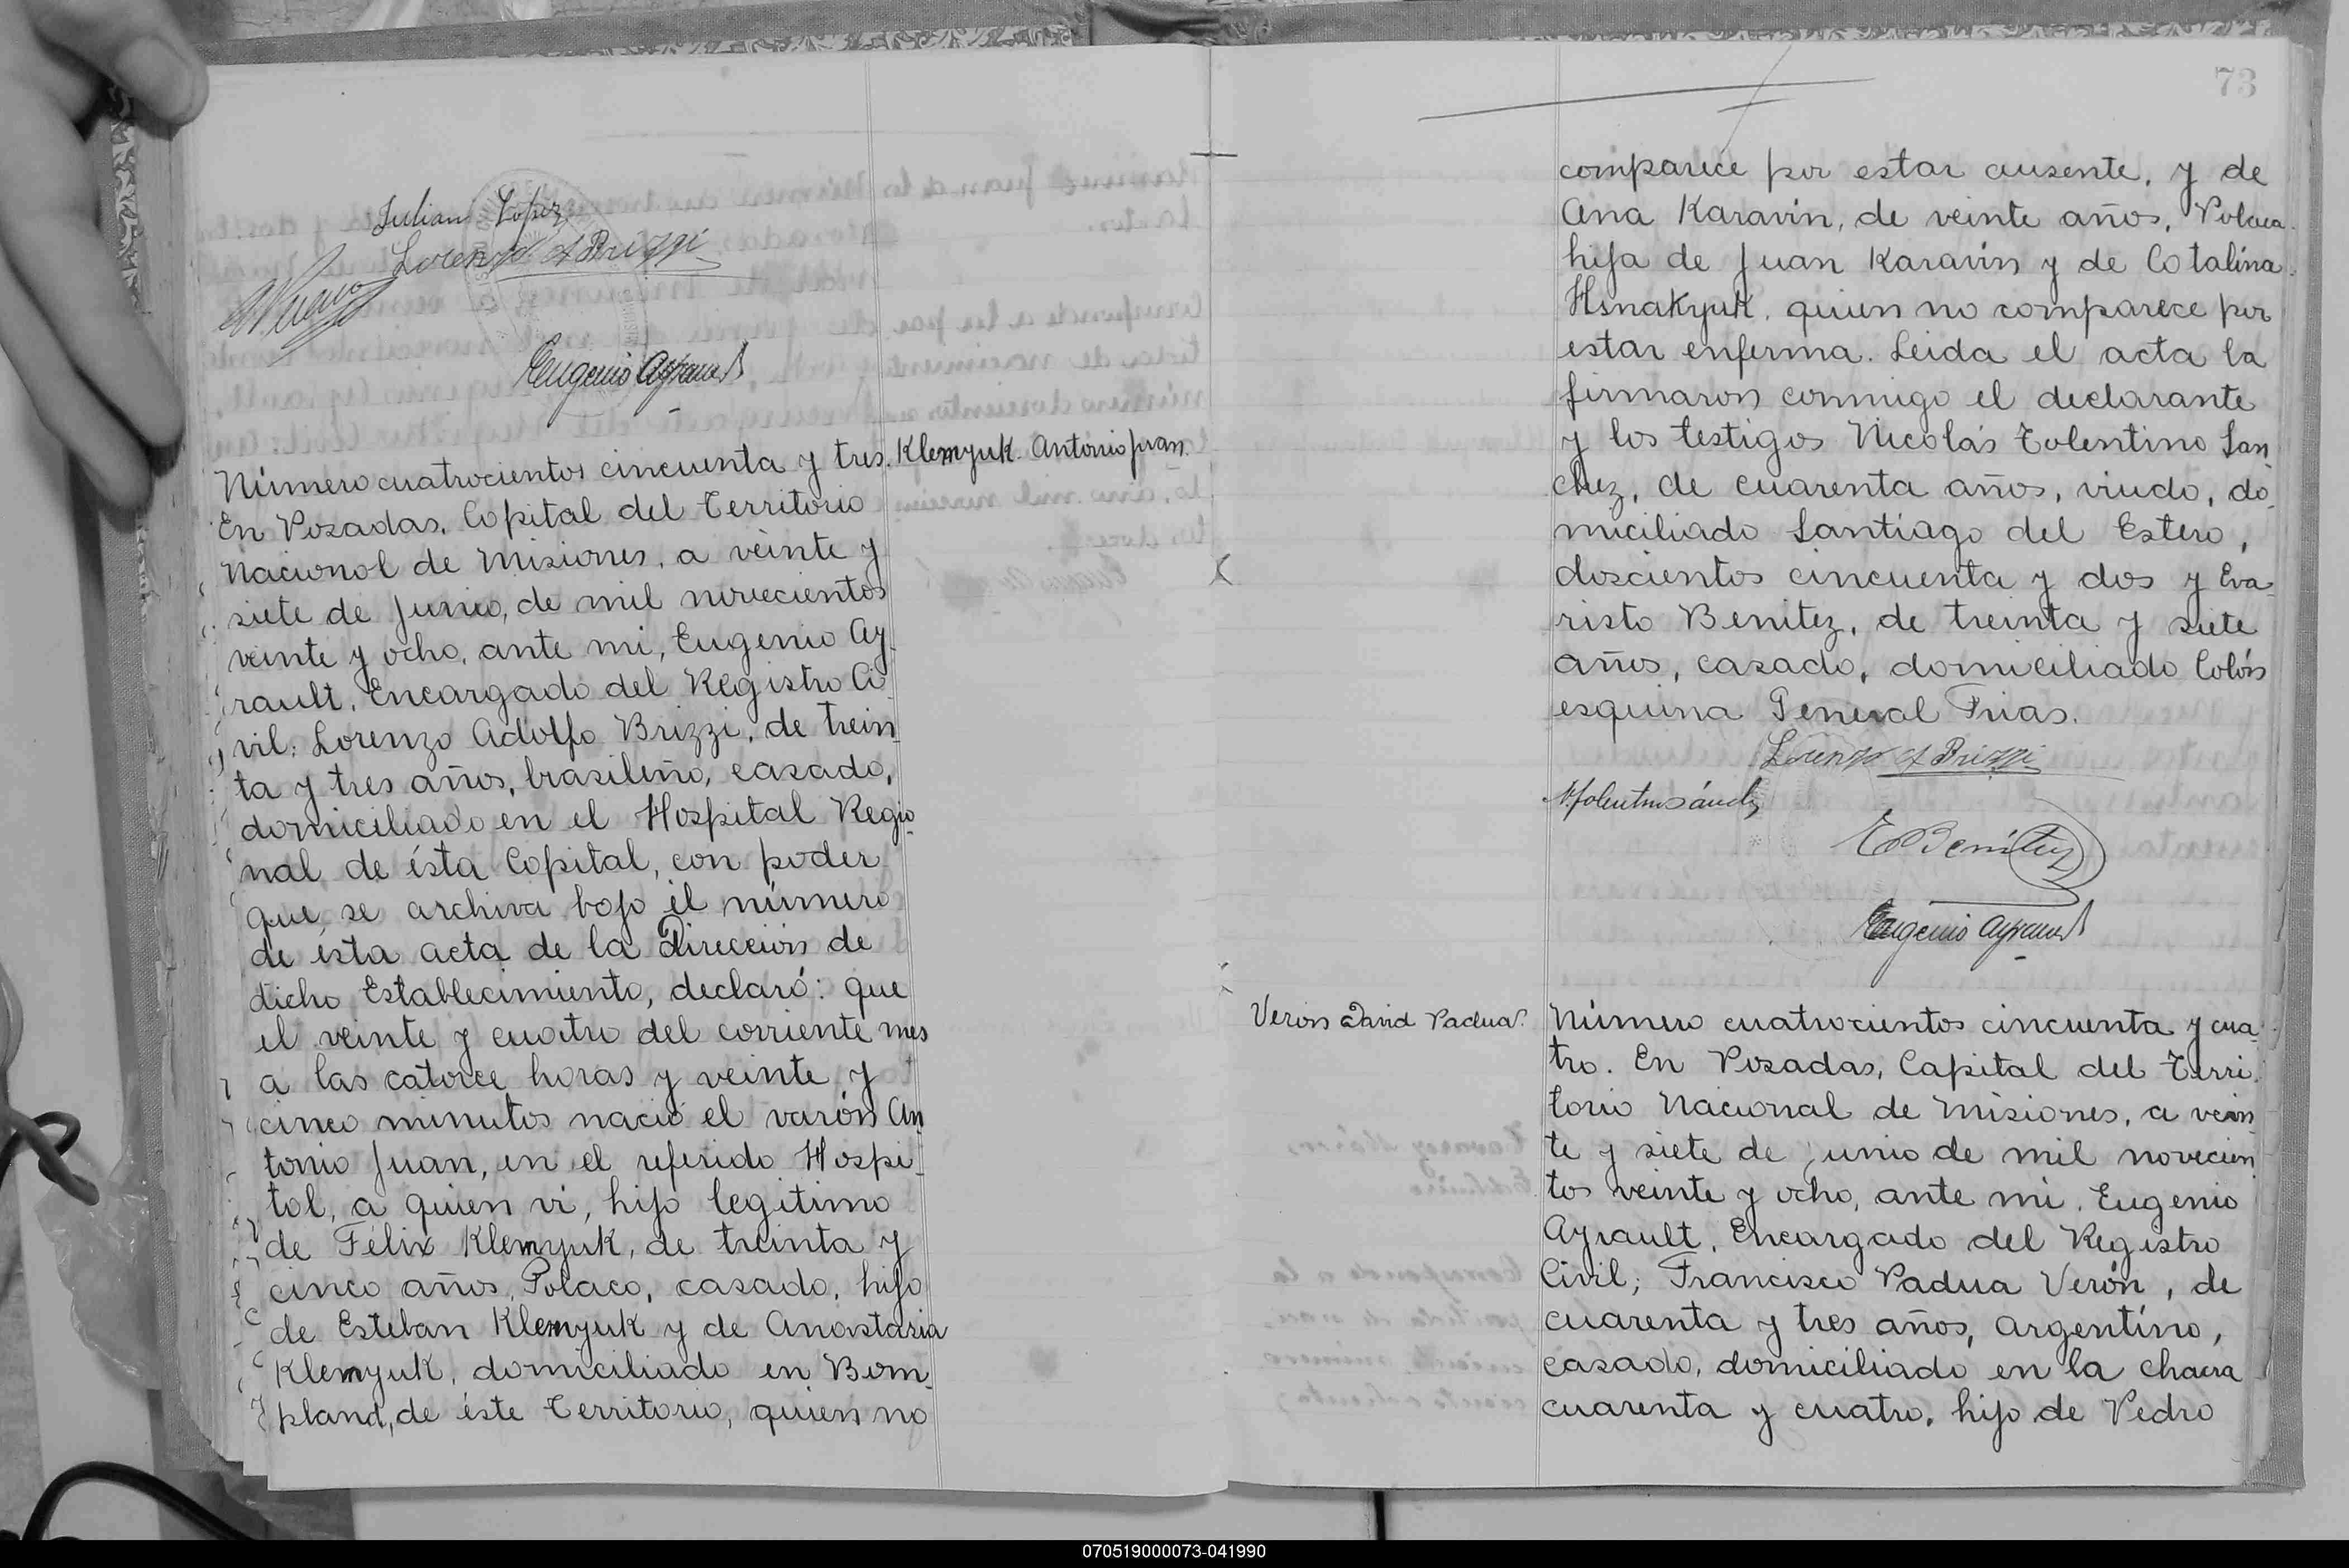 Julian Lopez
Lorenzo A Brizzi
Eugenio Ayrault
Klemyuk. Antonio Juan.
Número cuatrocientos cincuenta y tres.
En Posadas, Capital del Territorio
Nacional de Misiones, a veinte y
siete de Junio, de mil novecientos
veinte y ocho, ante mi, Eugenio Ay
rault, Encargado del Registro Ci
vil: Lorenzo Adolfo Brizzi, de trein
ta y tres años, brasileño, casado,
domiciliado en el Hospital Regio
nal de ésta Capital, con poder
que se archiva bajo el número
de ésta acta de la Dirección de
dicho Establecimiento, declaró: que
el veinte y cuatro del corriente mes
a las catorce horas y veinte y
cinco minutos nació el varón An
tonio Juan, en el referido Hospi
tal, a quien vi, hijo legitimo
de Félix Klemyuk, de treinta y
cinco años, Polaco, casado, hijo
de Esteban Klemyuk y de Anastasia
Klemyuk, domiciliado en Bom
pland, de éste Territorio, quien no
73
comparece por estar ausente, y de
Ana Karavin, de veinte años, Polaca
hija de Juan Karavin y de Catalina
Hsnakyuk, quien no comparece por
estar enferma. Leida el acta la
firmaron conmigo el declarante
y los testigos Nicolás Tolentino San
chez, de cuarenta años, viudo, do
miciliado Santiago del Estero,
doscientos cincuenta y dos y Eva
risto Benitez, de treinta y siete
años, casado, domiciliado Colón
esquina General Frias.
Lorenzo A Brizzi
N. Tolentino Sánchez
E Benítez
Eugenio Ayrault
Veron David Padua.
Número cuatrocientos cincuenta y cua
tro. En Posadas, Capital del Terri
torio Nacional de Misiones, a vein
te y siete de junio de mil novecien
tos veinte y ocho, ante mi, Eugenio
Ayrault, Encargado del Registro
Civil; Francisco Padua Verón, de
cuarenta y tres años, Argentino,
casado, domiciliado en la chacra
cuarenta y cuatro, hijo de Pedro
070519000073-041990